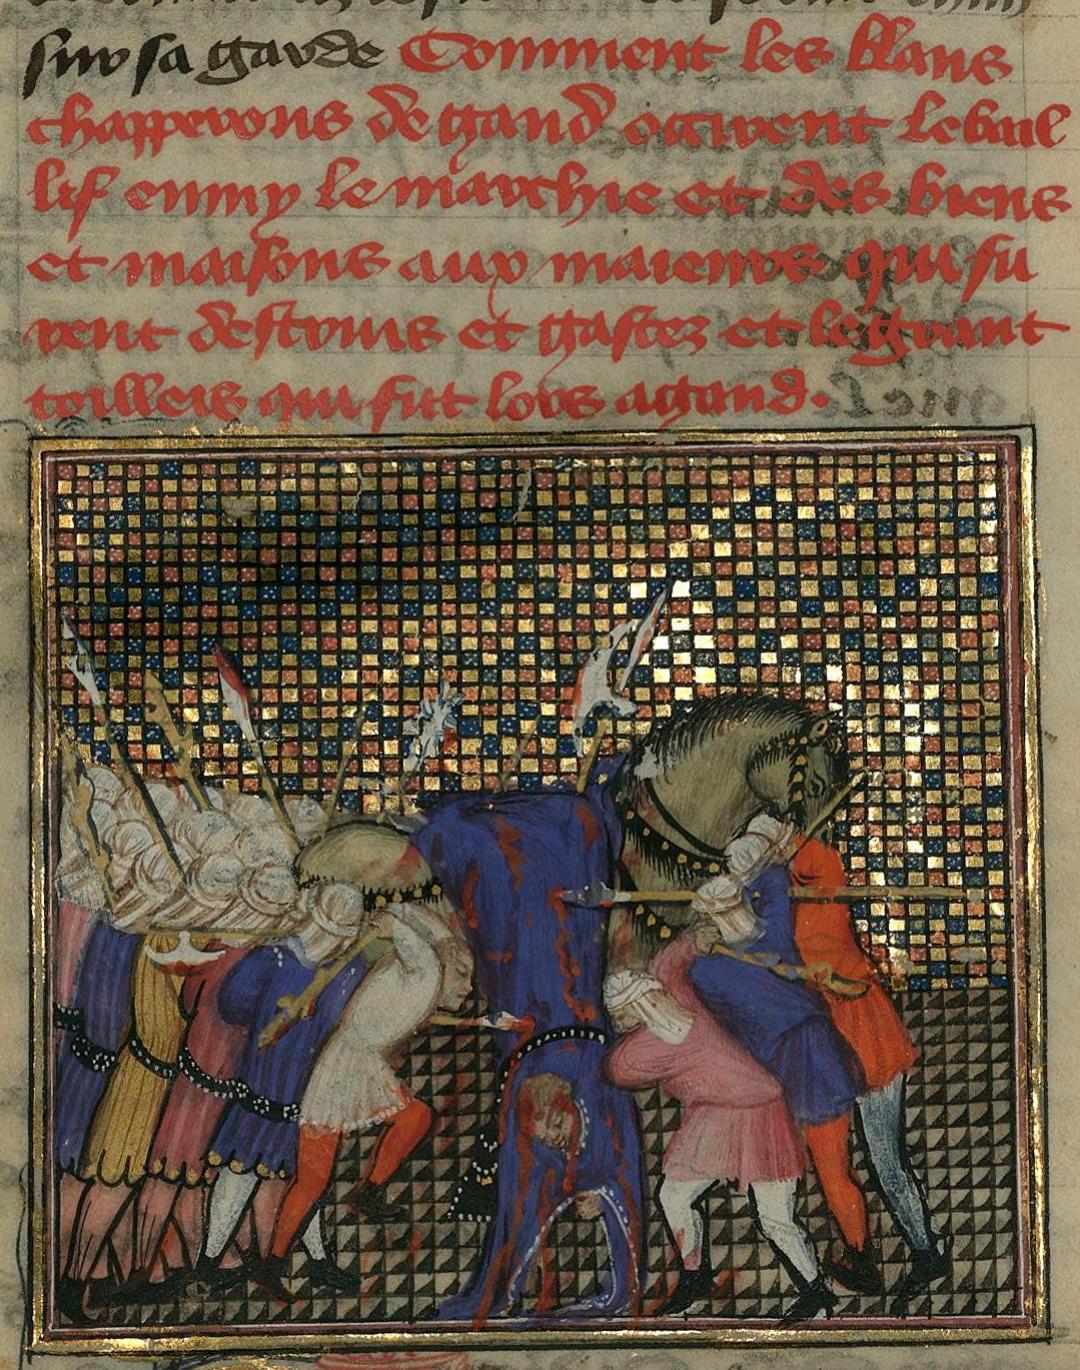 sur sa garde Comment les blans
chapperons de gand occirent le bail
lif enmy le marchie et des biens
et maisons aux maieurs qui fu
rent destruis et gastez et le grant
toilleis qui fut lors a gand.